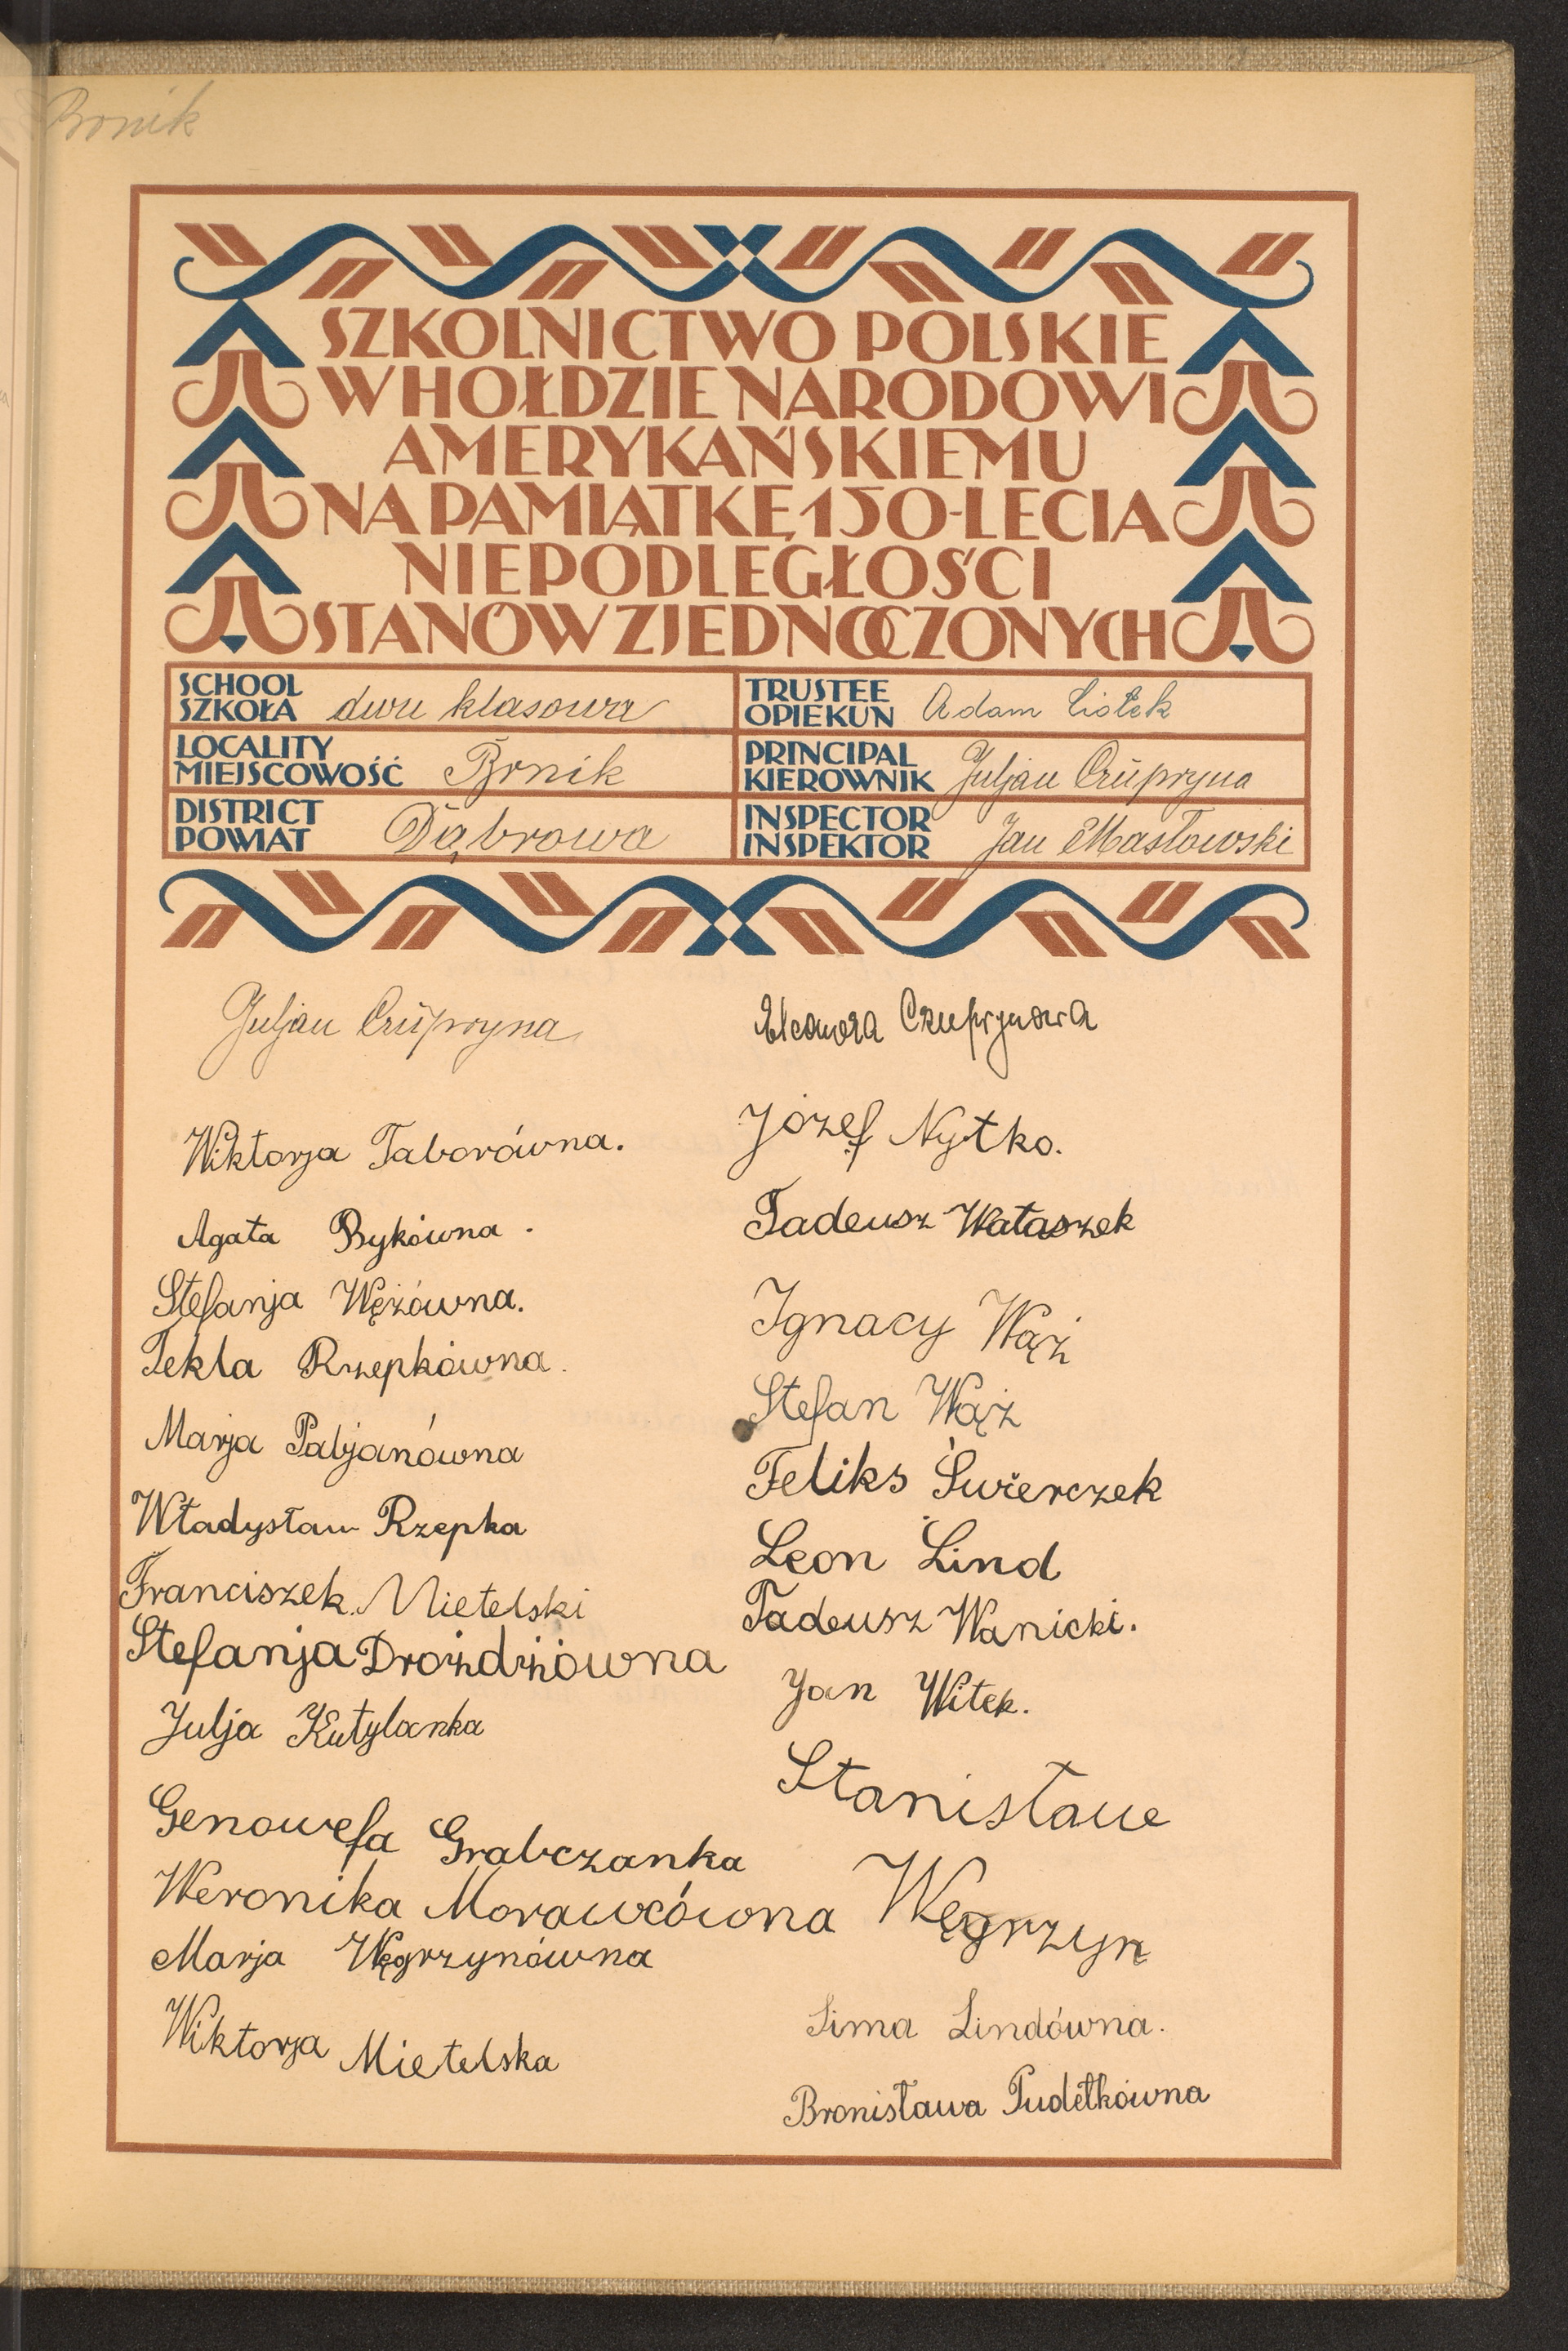 Brnik
SZKOLNICTWO POLSKIE
W HOŁDZIE NARODOWI
AMERYKAŃSKIEMU
NA PAMIĄTKĘ 150-LECIA
NIEPODLEGŁOŚCI
STANÓW ZJEDNOCZONYCH
SCHOOL
SZKOŁA dwu klasowa
TRUSTEE
OPIEKUN Adam
LOCALITY
MIEJSCOWOŚĆ Brnik
PRINCIPAL
KIEROWNIK Juljan Czupryna
DISTRICT
POWIAT Dąbrowa
INSPECTOR
INSPEKTOR Jan Masłowski
Juljan Czupryna
Wiktorja Taborówna.
Agata Bykówna.
Stefanja Wężówna.
Tekla Rzepkówna.
Marja Patyjanówna
Władysław Rzepka
Franciszek Mietelski
Stefanja Drożdżżówna
Julja Kutylanka
Genowefa Grabczanka
Weronika Morawcówna
Marja Węgrzynówna
Wiktorja Mietelska
Eleonora Czuprynowa
Józef Nytko.
Tadeusz Wataszek
Ignacy Wąż
Stefan Wąż
Feliks Świerczek
Leon Lind
Tadeusz Wanicki.
Jan Witek.
Stanisław
Węgrzyn
Sima Lindówna.
Bronisława Pudełkówna